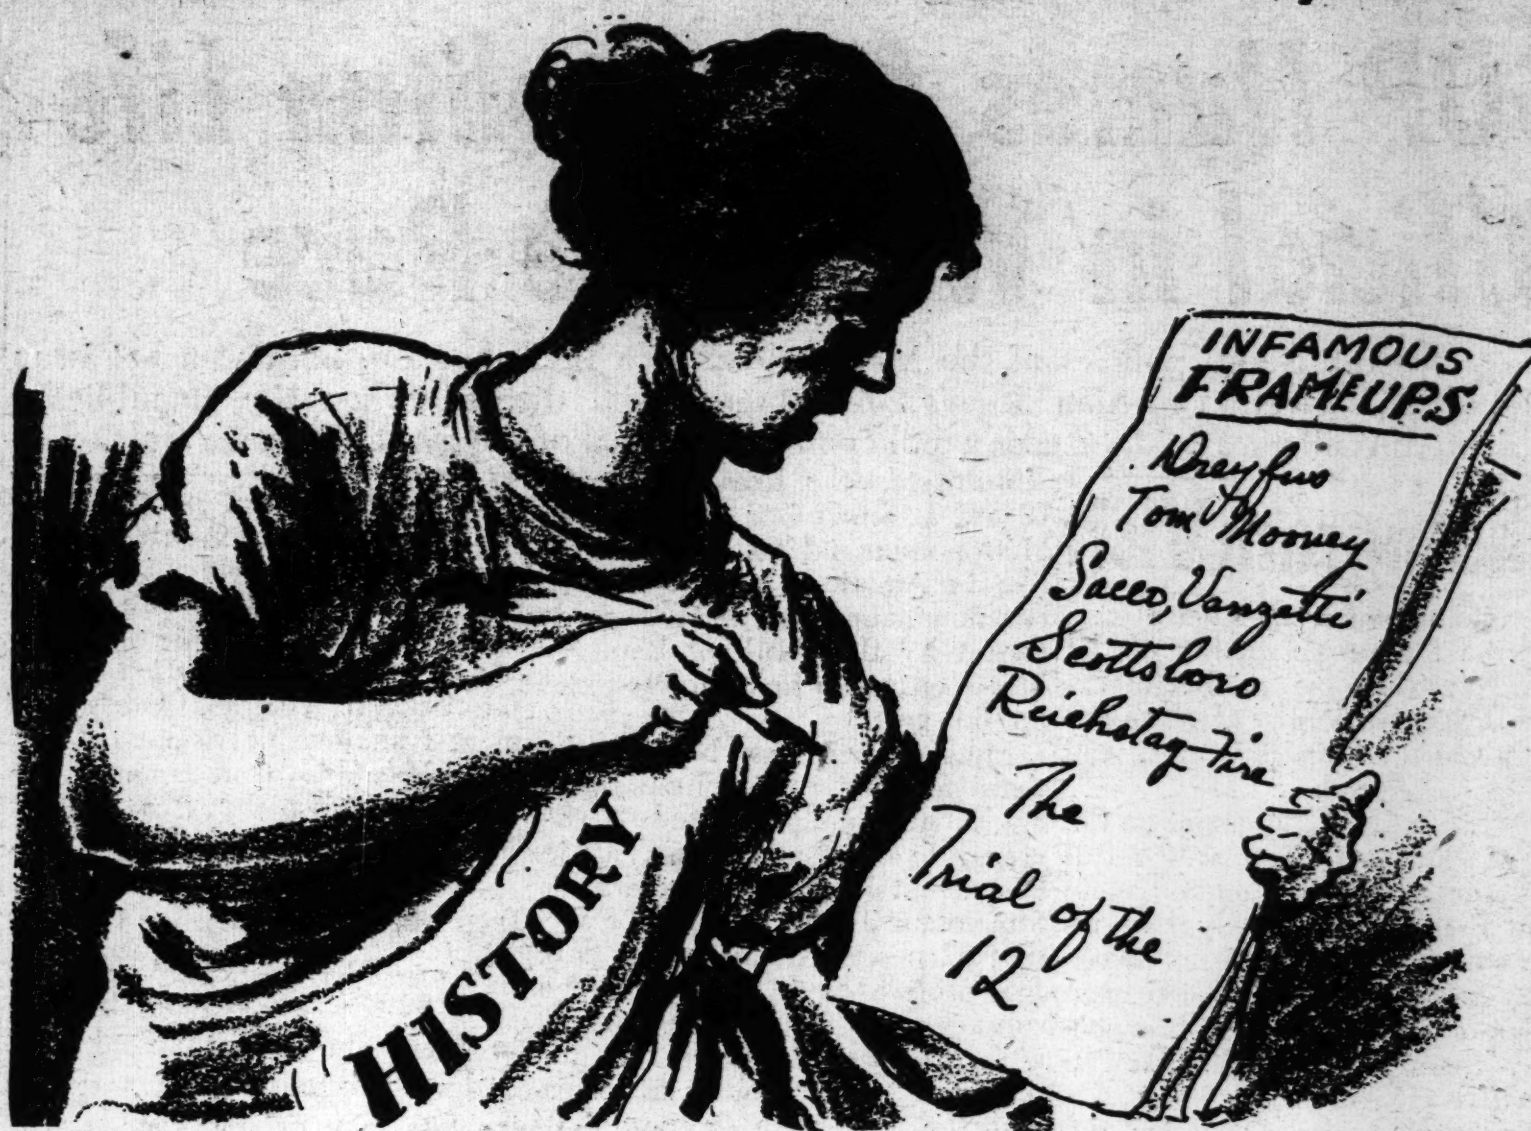 INFAMOUS
FRAMEUPS
Dreyfus
Tom Mooney
Sacco, Vanzetti
Scottsboro
Reichstag Fire
The
Trial of the
12
HISTORY